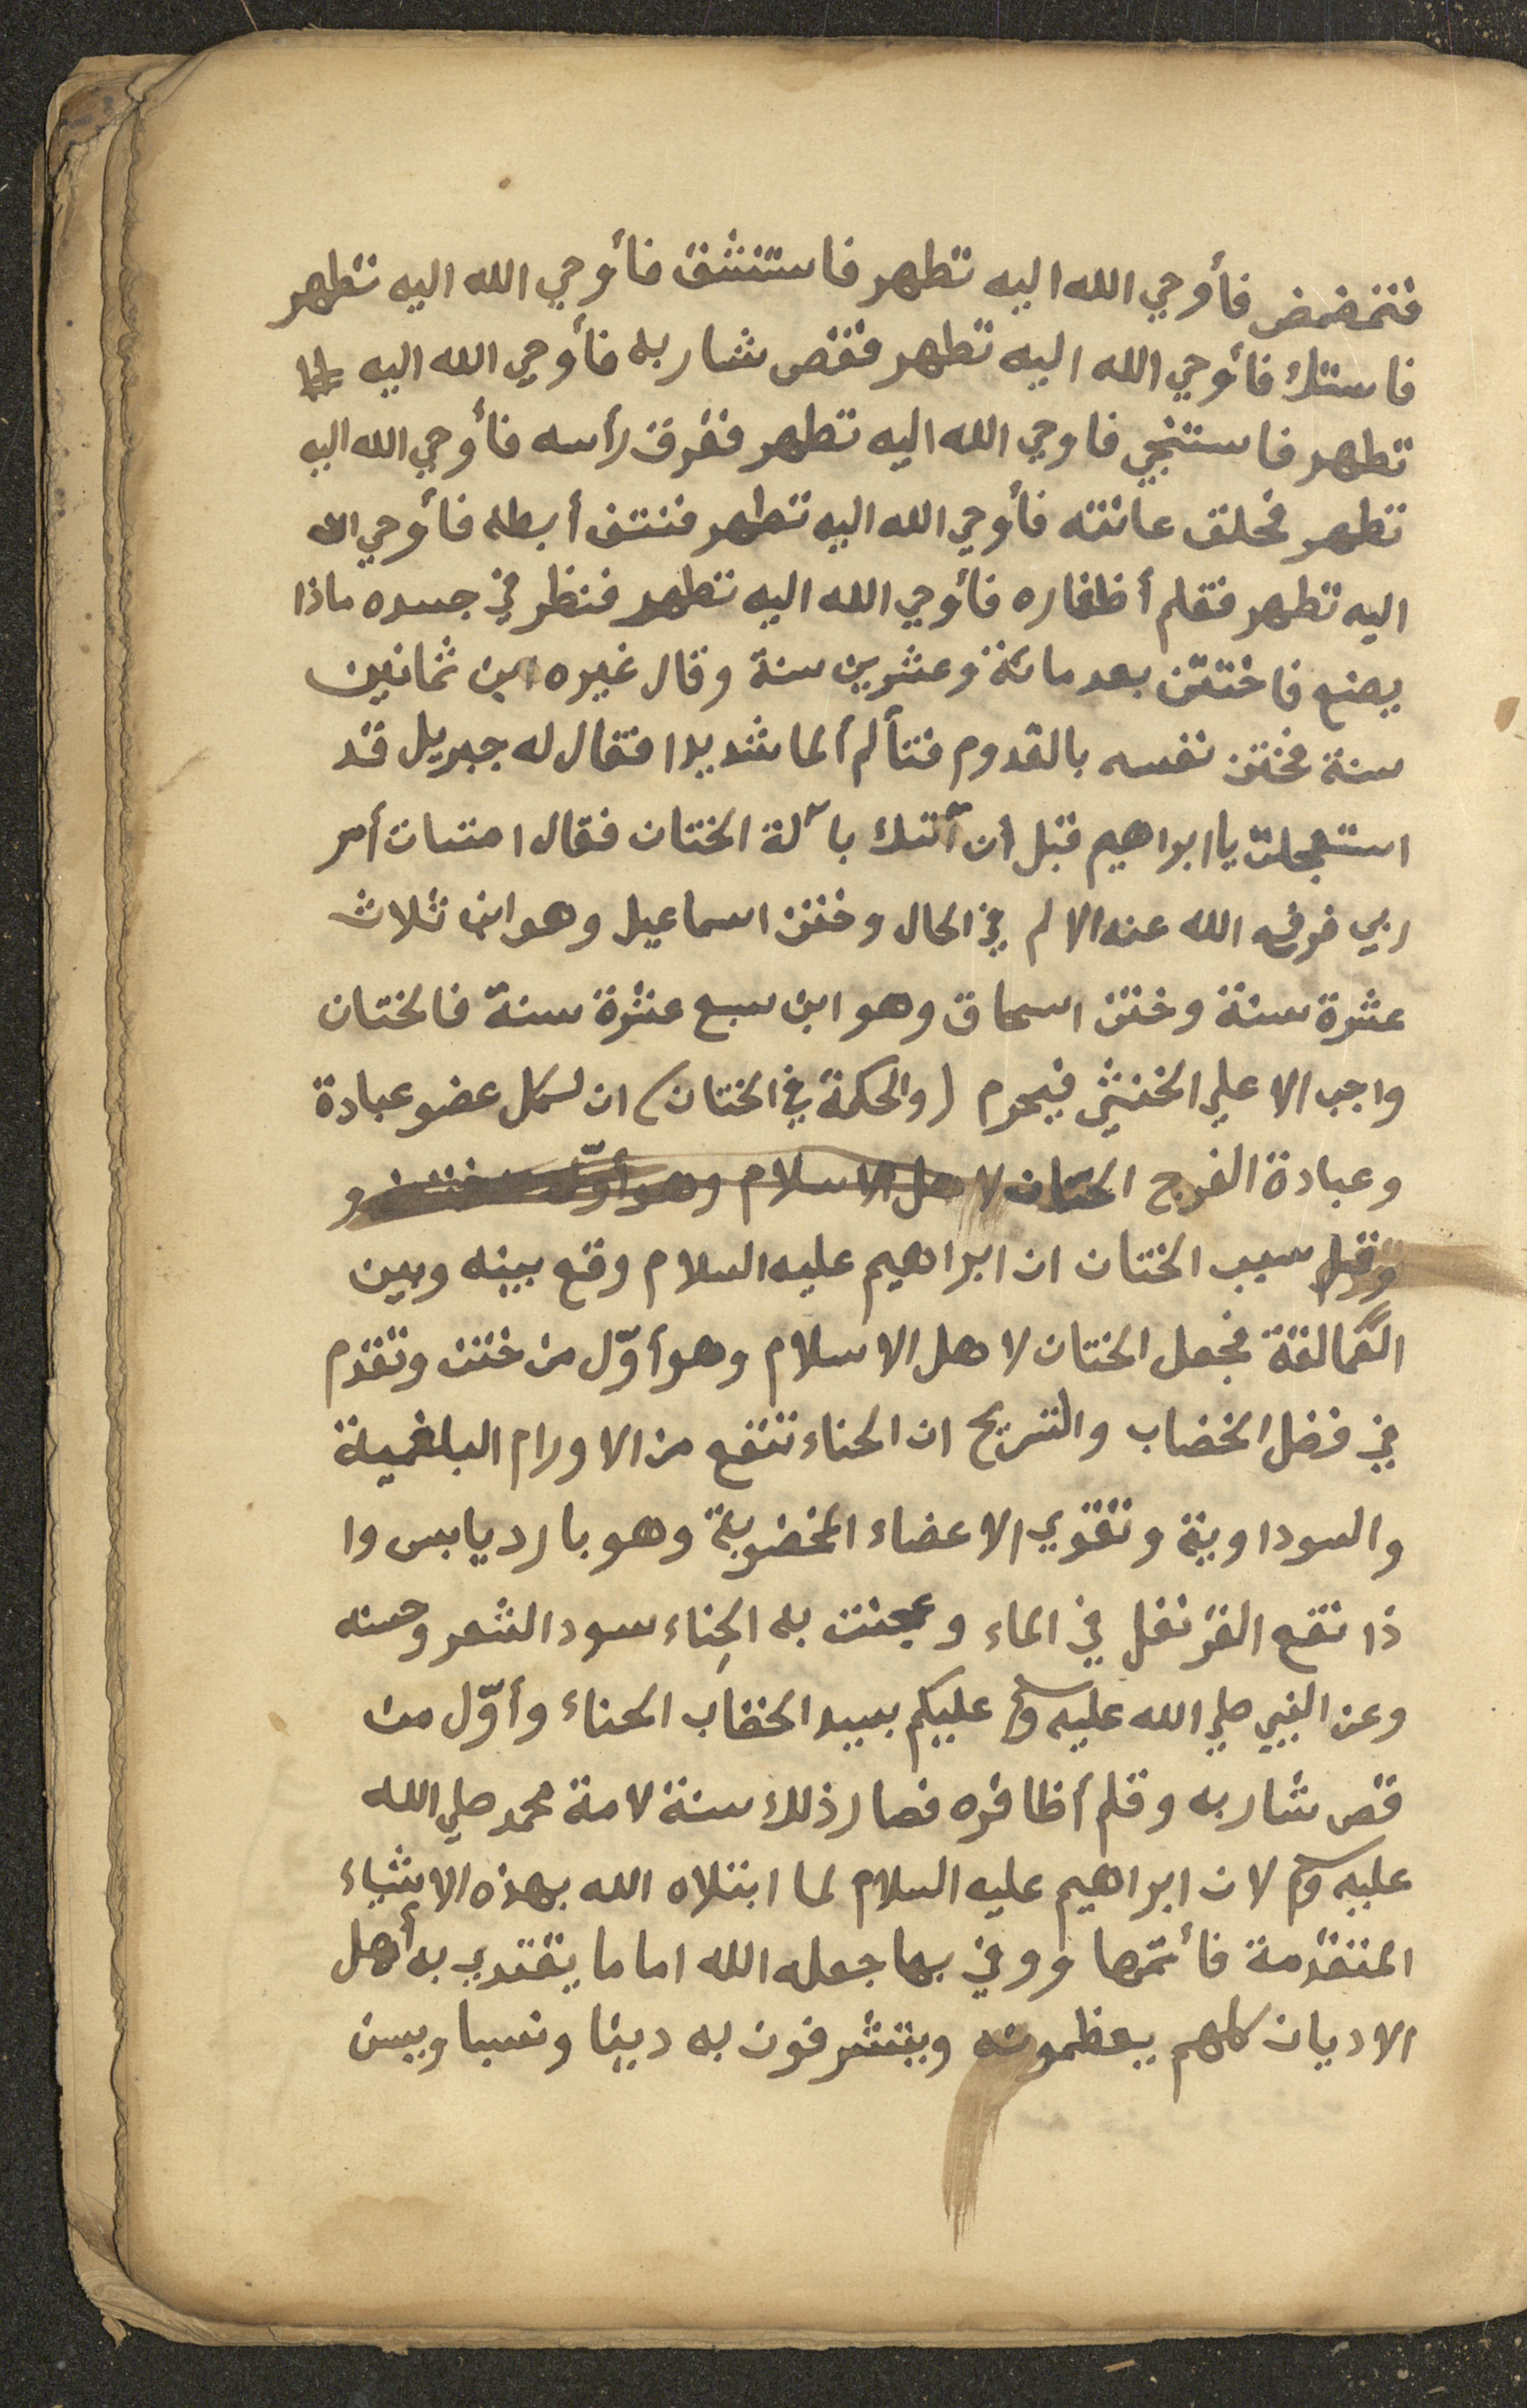 فتمضمض فأوحي الله اليه تطهر فاستنشق فأوحي الله اليه تطهر
فاستك فأوحي الله اليه تطهر فقص شاربه فأوحي الله اليه
تطهر فاستنجي فاوحي الله اليه تطهر ففرق رأسه فأوحي الله اليه
تطهر فحلق عانته فأوحي الله اليه تطهر فنتف أبطه فأوحي الله
اليه تطهر فقلم أظفاره فأوحي الله اليه تطهر فنظر في جسده ماذا
يصنع فاختتن بعد مائة وعشرين سنة وقال غيره ابن ثمانين
سنة فختن نفسه بالقدوم فتألم ألما شديدا فقال له جبريل قد
استعجلت يا ابراهيم قبل أن آتتك بآلة الختان فقال امتسات أمر
ربي فرفع الله عنه الالم في الحال وختن اسماعيل وهو ابن ثلاث
عشرة سنة وختن اسحاق وهو ابن سبع عشرة سنة فالختان
واجب الا علي الخنثي فيحرم (والحكمة في الختان) ان لكل عضو عبادة
وعبادة الفرج الختان لاهل الاسلام وهو أوّل من ختن و
وقيل سبب الختان ان ابراهيم عليه السلام وقع بينه وبين
العمالقة فجعل الختان لاهل الاسلام وهو أوّل من ختن وتقدم
في فضل الخضاب والتسريح ان الحناء تنفع من الاورام البلغمية
والسوداوية وتقوي الاعضاء المخضوبة وهو بارد يابس وا
ذا نقع القرنفل في الماء وعجنت به الحِناء سود الشعر وحسنه
وعن النبي صلي الله عليه وسلم عليكم بسيد الخضاب الحناء وأوّل من
قص شاربه وقلم أظافره فصار ذلك سنة لامة محمد صلي الله
عليه وسلم لان ابراهيم عليه السلام لما ابتلاه الله بهذه الاشياء
المتقدمة فأتمّها ووفي بها جعله الله اماما يقتدي به أهل
الاديان كلهم يعظمونه ويتشرفون به دينا ونسبا ويسن